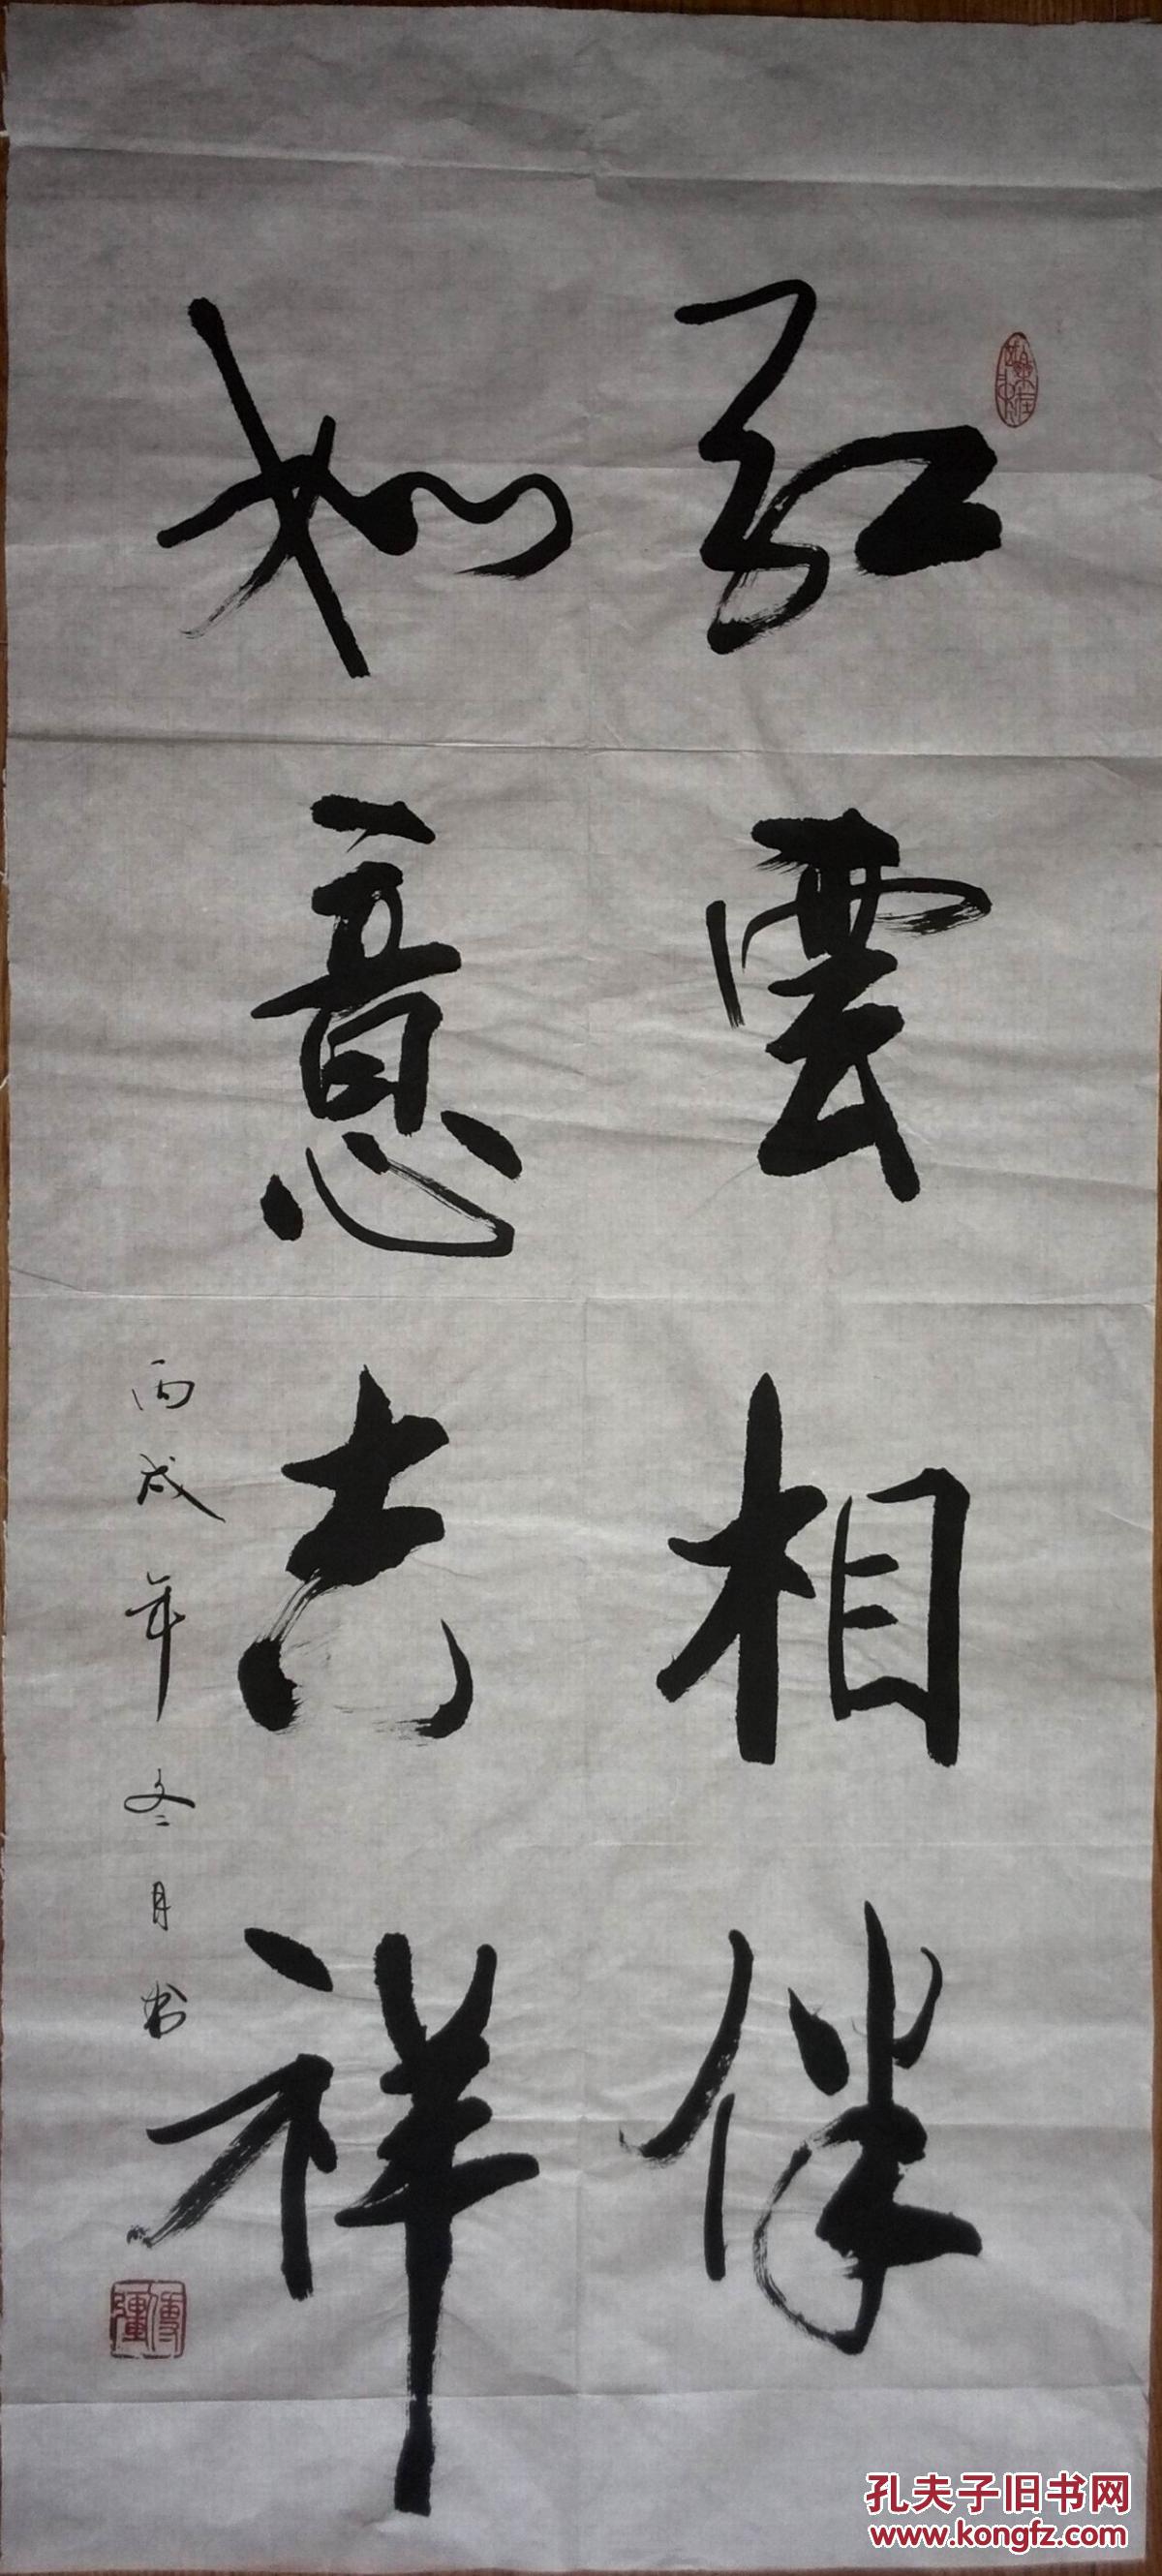 红雲相伴
如意吉祥
丙戌年冬月書
孔夫子旧书网
www.kongfz.com